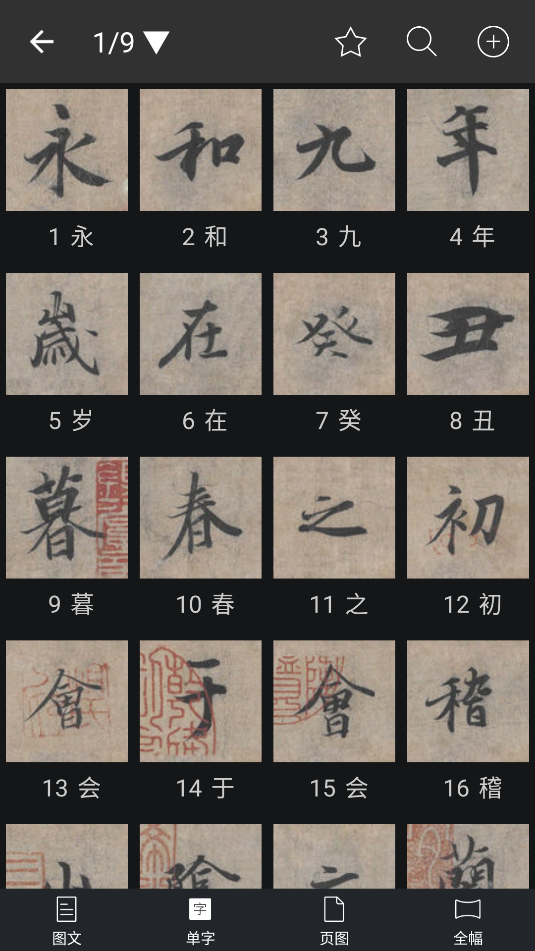 1/9
永 和 九 年
1 永 2 和 3 九 4 年
歲 在 癸 丑
5 岁 6 在 7 癸 8 丑
暮 春 之 初
9 暮 10 春 11 之 12 初
會 于 會 稽
13 会 14 于 15 会 16 稽
图文 单字 页图 全幅